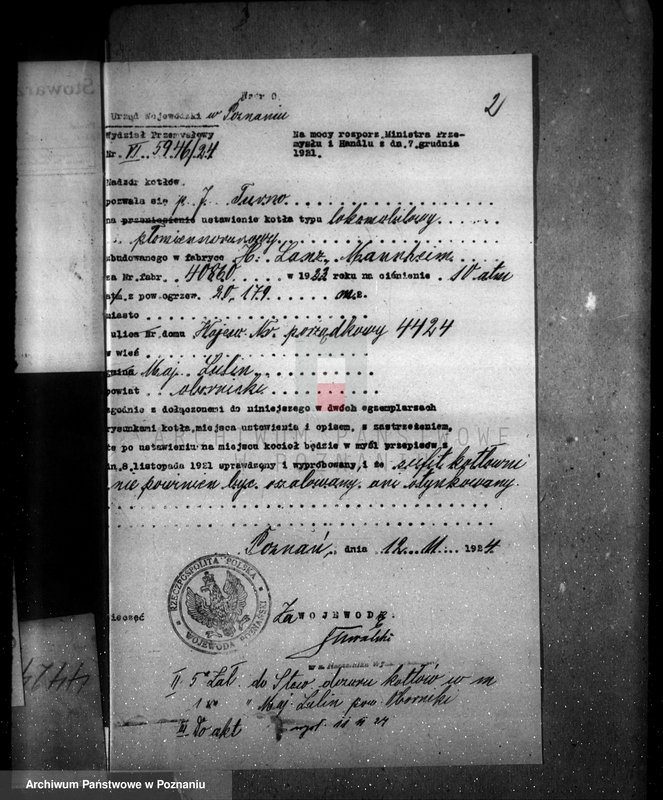 Stowarz
Wzór C.
2
Urząd Wojewódzki w Poznaniu
Wydział Przemysłowy
Nr. VI. 5946/24
Na mocy rozporz. Ministra Prze-
mysłu i Handlu z dn. 7. grudnia
1921.
Nadzór kotłów.
pozwala się p. J. Turno
na przeniesienie ustawienie kotła typu lokomobilowy
płomiennorurowy
zbudowanego w fabryce H. Lanz, Mannheim
za Nr. fabr. 40860 w 1922 roku na ciśnienie 10 atm
z pow. ogrzew. 20.179 m 2.
miasto
ulica Nr. domu Kajew. Nr. porządkowy 4424
w wieś
gmina Maj. Lulin
powiat obornicki
zgodnie z dołączonemi do niniejszego w dwóch egzemplarzach
rysunkami kotła, miejsca ustawienia i opisem, z zastrzeżeniem,
że po ustawieniu na miejscu kocioł będzie w myśl przepisów z
dn. 8. listopada 1921 sprawdzony i wypróbowany, i że sufit kotłowni
nie powinien być szalowany ani otynkowany.
Poznań, dnia 12. 11. 1924
RZECZPOSPOLITA POLSKA
WOJEWODA POZNAŃSKI
pieczęć
Za WOJEWODĘ.
II 5 zał. do Stow. dozoru kotłów w m
1 " Maj. Lulin pow. Obornicki
III Do akt
4424
ARCHIWUM PAŃSTWOWE
W POZNANIU
Archiwum Państwowe w Poznaniu